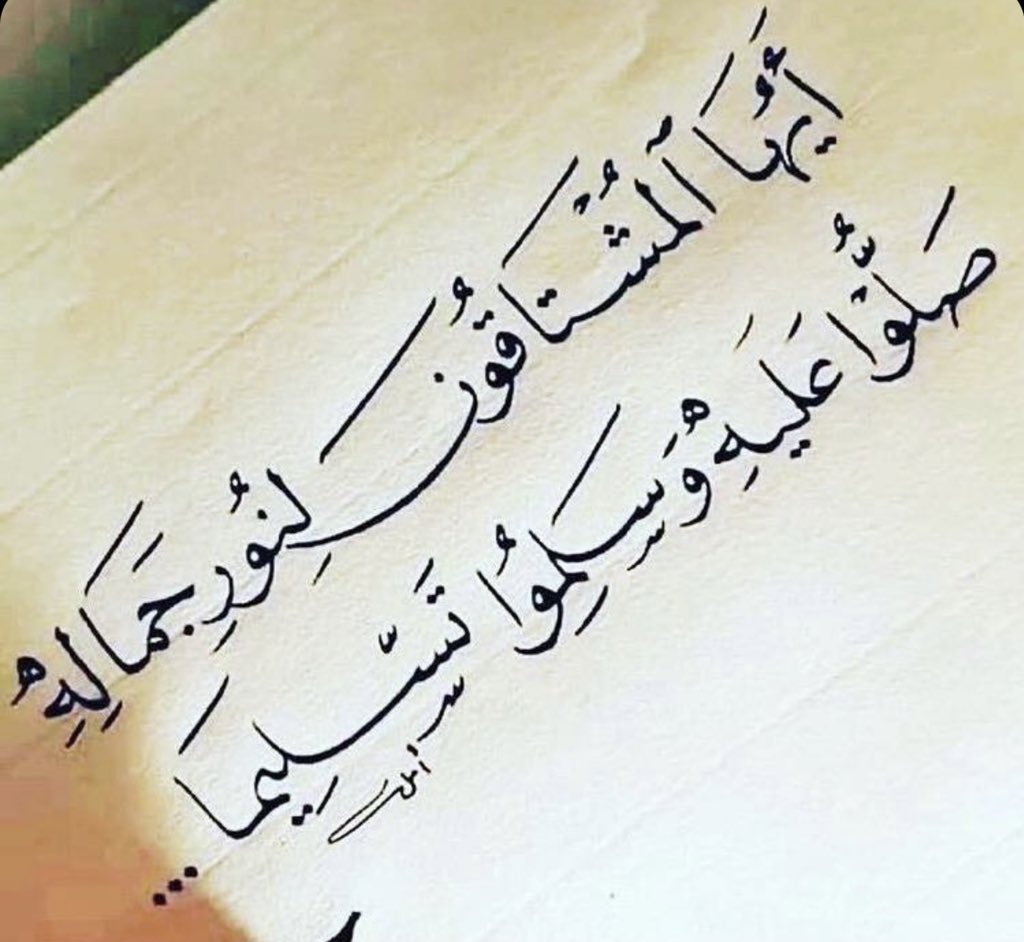 أَيُّهَا ٱلْمُشْتَاقُونَ لِنُورِ جَمَالِهِ
صَلُّوْا عَلَيهِ وَسَلِّمُوْا تَسْلِيمَا...